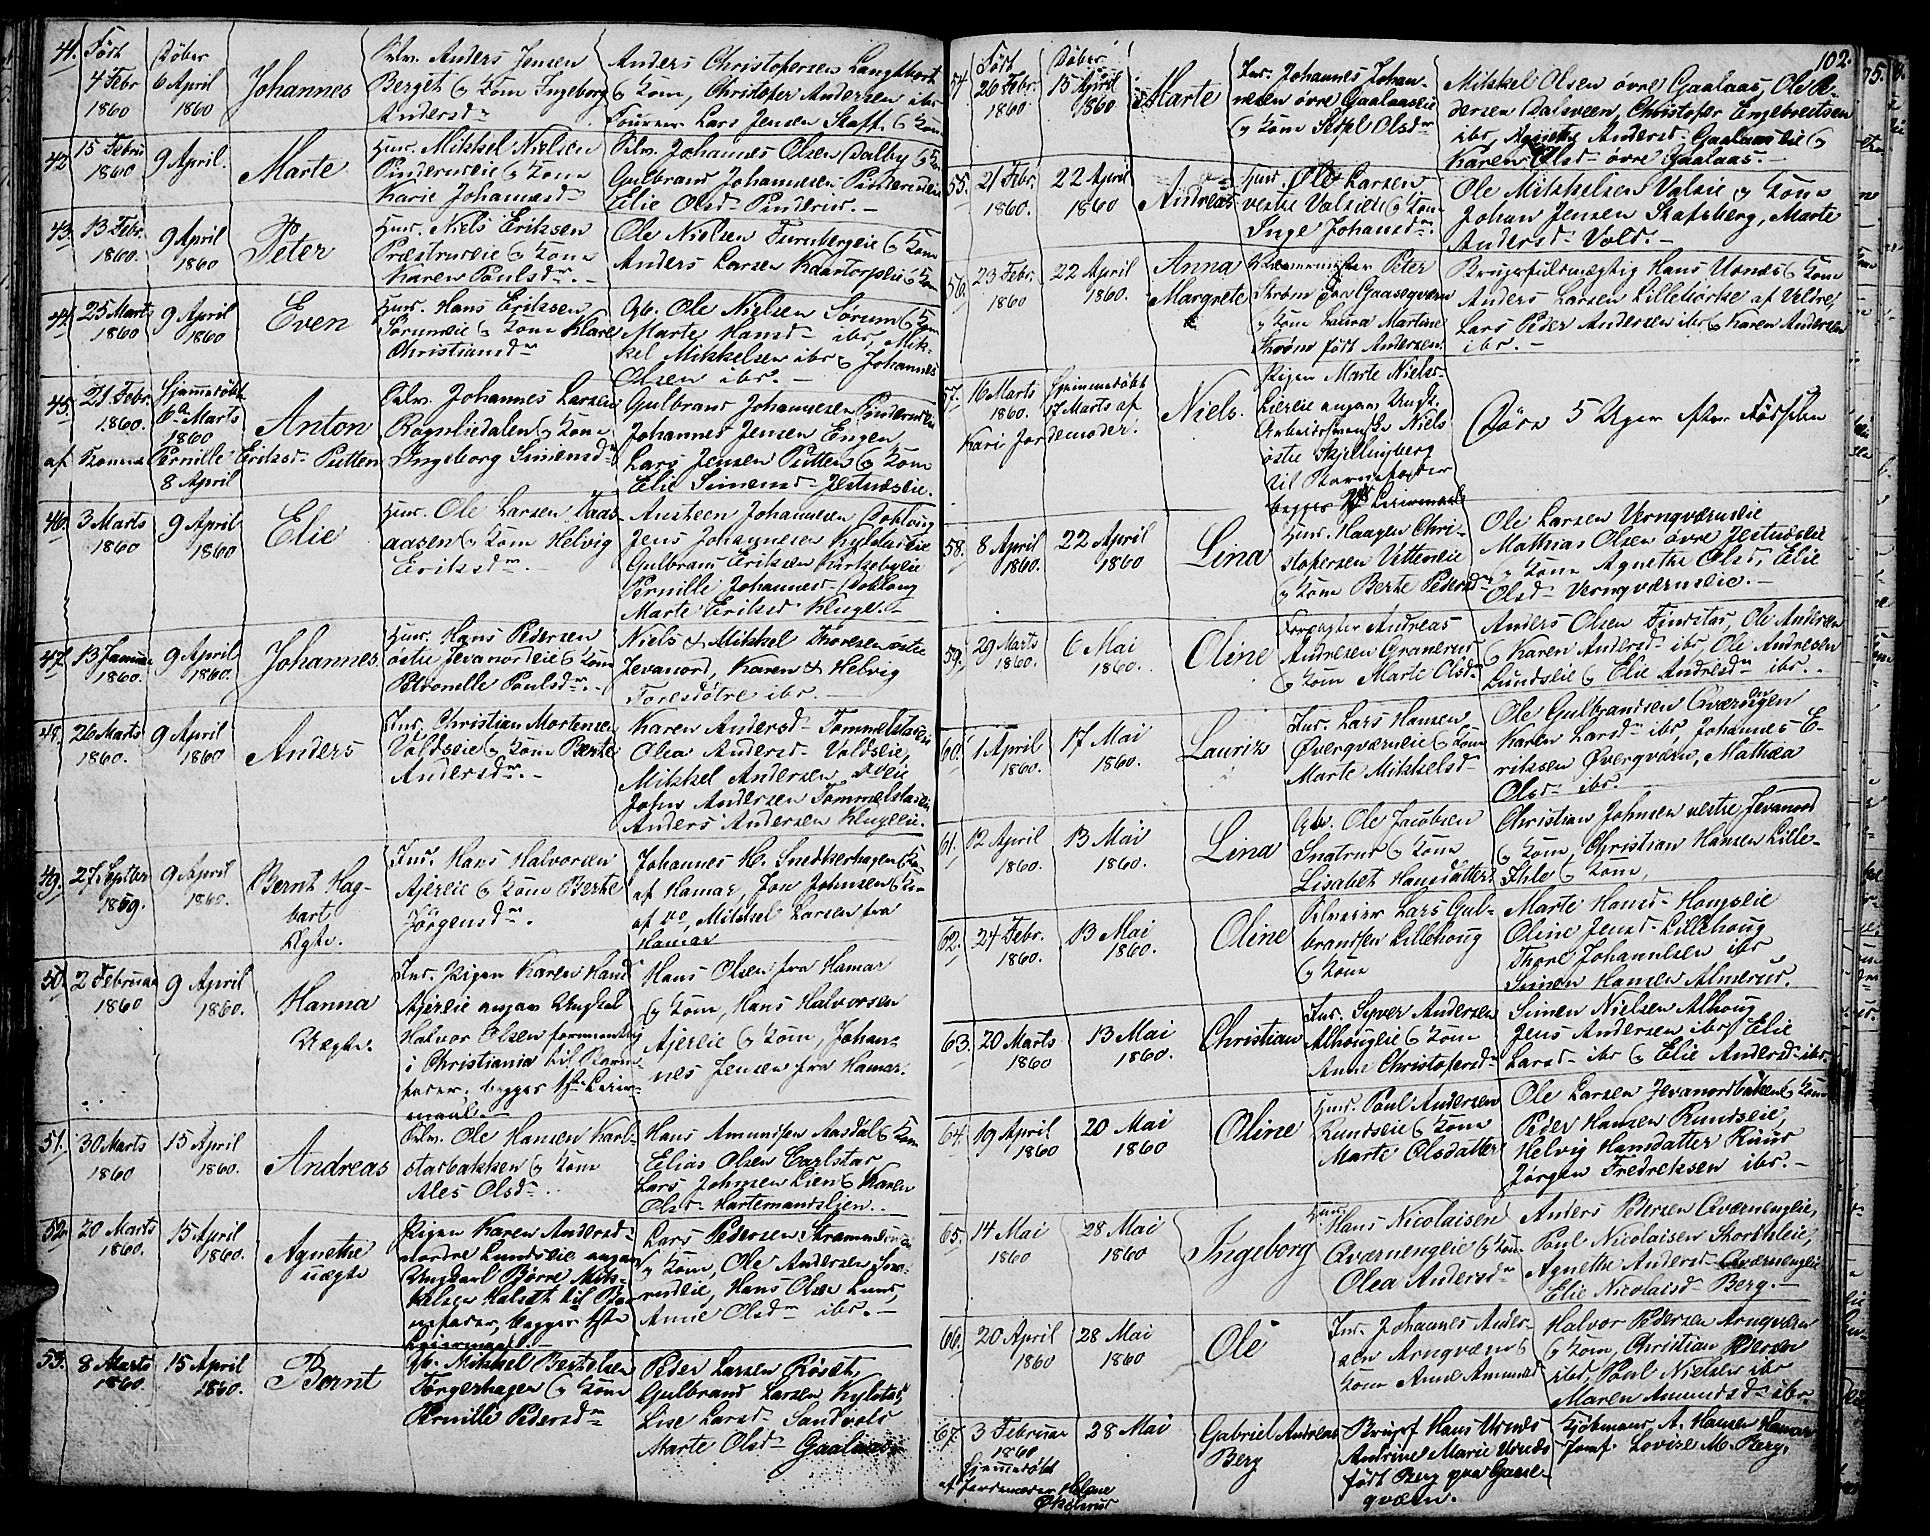 41. Født
4 Febr
1860
Døbt
6 April
1860
Johannes
Selv. Anders Jensen
Berget & Kone Ingeborg
Andersdr
Anders Christophersen Langthort
& Kone, Christopher Andersen ibr
Lars Jensen Staff & Kone
42. 15 Febru
1860
9 April.
Marte
Huus. Mikkel Nielsen
Pinderudeie & Kone
Karie Johannesd
Selv. Johannes Olsen Dalby & K
Gulbrand Johannesen Pinderudeie
Elie Olsd Pinderud.
43. 13 Febr.
1860.
9 April
1860
Peter
Huus. Niels Eriksen
Præstrudeie & Kone
Karen Paulsdr
Ole Nielsen Furubergeie & Kone
Anders Larsen Kaatorpeie & Kone
44. 25 Marts
1860
9 April
1860
Even
Huus. Hans Eriksen
Sørumeie & Kone Klare
Christiansdr
Gb. Ole Nielsen Sørum & Kone
Marte Hansd ibr, Mik-
kel Mikkelsen ibr & Johannes
Olsen ibr.
45. 21 Febr.
1860.
Hjemmedøbt
6te Marts
1860
af Konen Pernille Eriksd Putten
8 April
Anton
Selv. Johannes Larsen
Rognliedalen & Kone
Ingeborg Simensdr
Gulbrand Johannesen Pinderudeie
Johannes Jensen Engen,
Lars Jensen Putten & Kone
Elie Simensd Jestnæseie.
46. 3 Marts
1860
9 April
1860
Elie
Huus. Ole Larsen Aas-
aasen & Kone Helvig
Eriksdr
Austeen Johannesen Dokloug
Jens Johannesen Kylstadeie
Gulbrand Eriksen Kirkebyeie
Pernille Johannesd Dokloug
Marte Eriksd Kluge.
47. 13 Januar
1860.
9 April
1860.
Johannes
Huus. Hans Pedersen
østre Jevanordeie & Kone
Petronelle Paulsdr.
Niels & Mikkel Thoresen østre
Jevanord, Karen & Helvig
Toresdøtre ibr.
48. 26 Marts
1860.
9 April
1860
Anders
Ins. Christian Mortensen
Voldseie & Kone Berte
Andersdr.
Karen Andersd Tommelstadeie
Olea Andersd Voldseie,
Mikkel Andersen Aoeie
Johs Andersen Tommelstadeie
Anders Andersen Klugeeie.
49. 27 Septber
1859.
9 April
1860.
Bernt Hag-
bart
Ægte.
Ins. Hans Halvorsen
Ajereie & Kone Berte
Jørgensdr.
Johannes H. Snedkerhagen & K
af Hamar, Jon Johnsen & K
af do, Mikkel Larsen fra
Hamar
50. 2 Februar
1860
9 April
1860.
Hanna
Uægte.
Ins. Pigen Karen Hansd
Ajereie angav Ungkarl
Halvor Olsen formentlig
i Christiania til Barne-
fader, begges 1ste Leier-
maal.
Hans Olsen fra Hamar
& Kone, Hans Halvorsen
Ajereie & Kone, Johan-
nes Jensen fra Hamar.
51. 30 Marts
1860
15 April
1860.
Andreas
Selv. Ole Hansen Karl-
stadbakken & Kone
Ales Olsdr.
Hans Amundsen Aasdal & Kone
Elias Olsen Carlstad
Lars Johnsen Lien & Karen
Olsd Hartemandslien.
52. 20 Marts
1860.
15 April
1860.
Agnethe
uægte
Pigen Karen Andersd
nordre Lundseie angav
Ungkarl Børre Mik-
kelsen Halseth til Bar-
nefader, begges 1ste
Leiermaal.
Lars Pedersen Strammerud
& Kone, Ole Andersen Sør-
rudeie, Hans Olsen Lund
Anne Olsdr ibr.
53. 8 Marts
1860.
15 April
1860.
Bernt
Gb. Mikkel Bertelsen
Torgerhagen & Kone
Pernille Pedersdr
Peder Larsen Røset,
Gulbrand Larsen Kylstad,
Lise Larsd Sandvold
Marte Olsd Gaalaas
102.
54. Født
26 Febr.
1860.
Døbt
15 April
1860
Marte
Ins. Johannes Johan-
nesen øvre Gaalaaseie
& Kone Sidsel Olsdr
Mikkel Olsen øvre Gaalaas, Ole Pe-
dersen Dalsveen, Christopher Engebretsen
ibr, Agnethe Andersd Gaalaaseie &
Karen Olsd øvre Gaalaas.
55. 21 Febr.
1860.
22 April
1860
Andreas
Huus. Ole Larsen
vestre Valseie & Kone
Inge Johansdr.
Ole Mikkelsen Valeie & Kone
Johan Jensen Stafsberg, Marte
Andersd Vold.
56. 23 Febr.
1860
22 April
1860.
Anna
Margrete
Peter
Strøm paa Gaaseqværn
& Kone Laura Martine
Strøm født Andersen.
Brugsfuldmægtig Hans Urnæs & Kone
Anders Larsen Lillehørke af Veldre
Lars Peder Andersen ibr & Karen Andersen
ibr.
57. 16 Marts
1860.
Hjemmedøbt
17 Marts af
Kari Jordemoder.
Niels.
Pigen Marte Nielsd
Liereie angav Ungk.
Arbeidsmand Niels
østre Skjellingberg
til Barnefader
begges 1ste Leiermaal
Døde 5 Uger efter Fødselen
58. 8 April
1860.
22 April
1860
Lina
Huus. Haagen Chri-
stophersen Vetteneie
& Kone Berte Pedersdr
Ole Larsen Vernqværneie
Mathias Olsen øvre Jestrudeie
& Kone Agnethe Olsd, Elie
Olsd Vernqværneie.
59. 29 Marts
1860.
6 Mai
1860.
Oline
Forpagter Andreas
Andresen Granerud
& Kone Marte Olsdr
Anders Olsen Finstad, Ole Andersen
& Karen Andersd ibr, Ole Andresen
Lundseie & Elie Andresdr ibr.
60. 1 April
1860.
17 Mai
1860.
Lauritz
Ins. Lars Hansen
Øverqværneie & Kone
Marte Mikkelsd
Ole Gulbrandsen Qværnhagen
Karen Larsdr ibr, Johannes E-
riksen Øverqværn, Mathea
Olsd ibr.
61. 12 April
1860.
13 Mai
1860.
Lina
Gb. Ole Jacobsen
Snatrud & Kone
Lisabet Hansdatter
Christian Johnsen vestre Jevanord
& Kone, Christian Hansen Lille-
Ihle & Kone
62. 24 Febr.
1860.
13 Mai
1860.
Oline
Selveier Lars Gul-
brandsen Lillehoug
& Kone
Marte Hansd Hougseie
Oline Jensd Lillehoug
Thore Johannesen ibr
Simen Hansen Almerud.
63. 20 Marts
1860
13 Mai
1860.
Christian
Ins. Syver Andersen
Alhougeie & Kone
Anne Christophersdr
Simen Nielsen Alhoug
Jens Andersen ibr, Elie
Larsd ibr & Elie Andersd ibr.
64. 19 April
1860
20 Mai
1860
Oline
Huus. Paul Andersen
Rundseie & Kone
Marte Olsdatter
Ole Larsen Jevanordbakken & Kone
Peder Hansen Rundseie,
Helvig Hansdatter Ruud
Jørgen Fredriksen ibr.
65. 14 Mai
1860
28 Mai
1860
Ingeborg
Huus. Hans Nicolaisen
Qværnengeie & Kone
Olea Andersdr
Anders Pedersen Qværnengeie,
Paul Nicolaisen Skorthleie,
Agnethe Andersd Qværnengeie
Elie Nicolaisd Berg.
66. 20 April
1860
28 Mai
1860
Ole
Ins. Johannes Ander-
sen Arnqværn &
Kone Anne Amundsd
Halvor Pedersen Arnqværn
& Kone, Christian Pedersen
ibd, Paul Nielsen ibr
Maren Amundsd ibr.
67. 3 Februar
1860
Hjemmedøbt
af Jordemoder Helene
Økelsrud
28 Mai
Gabriel Andreas
Berg
Brugsf. Hans Urnæs
Andrine Marie Urnæs
født Berg paa Gaase-
qværn.
Kjøbmand A. Hansen Hamar
Jomf. Lovise M. Berg.